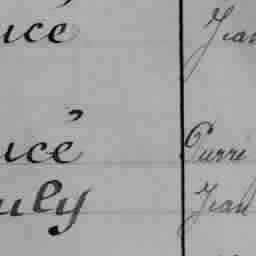 ucé Jean
ucé Pierre
uly Jean